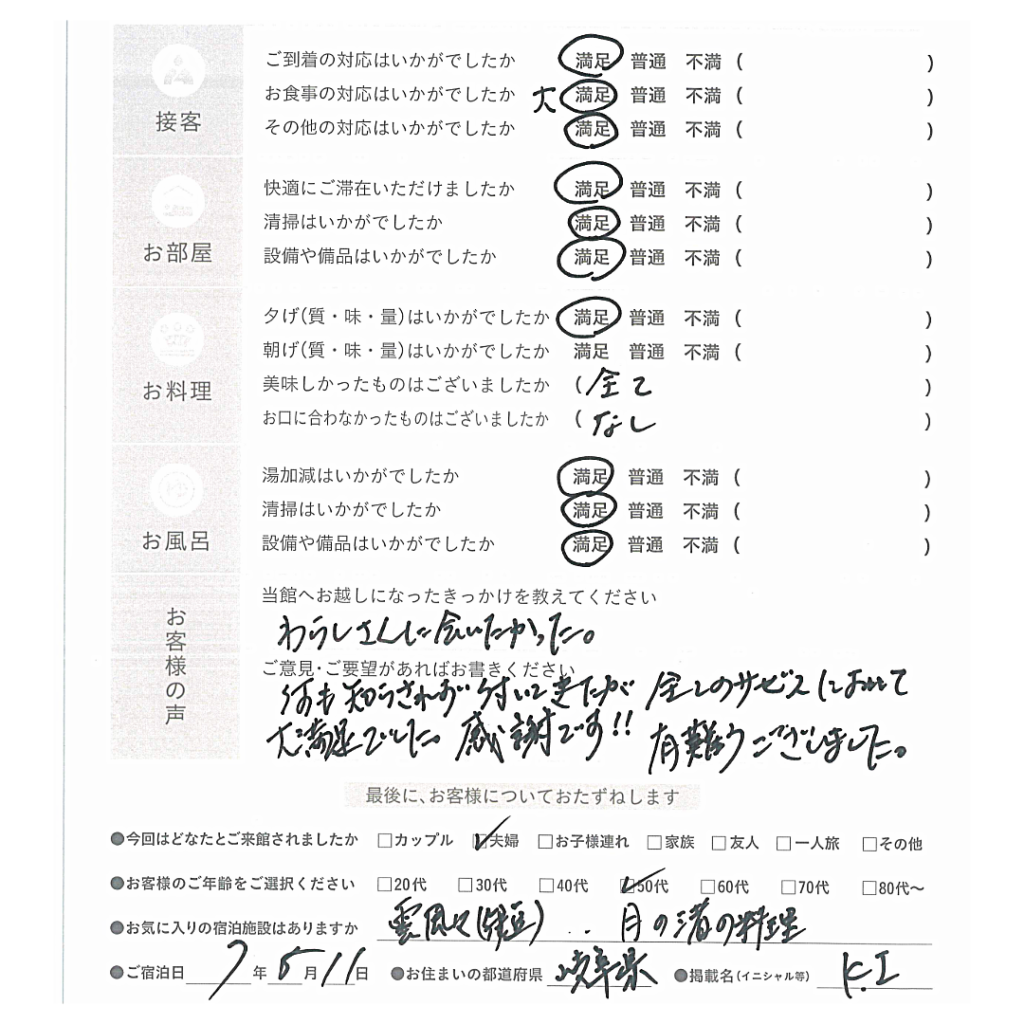 接客
ご到着の対応はいかがでしたか 満足 普通 不満 ( )
お食事の対応はいかがでしたか 大 満足 普通 不満 ( )
その他の対応はいかがでしたか 満足 普通 不満 ( )
お部屋
快適にご滞在いただけましたか 満足 普通 不満 ( )
清掃はいかがでしたか 満足 普通 不満 ( )
設備や備品はいかがでしたか 満足 普通 不満 ( )
お料理
夕げ(質・味・量)はいかがでしたか 満足 普通 不満 ( )
朝げ(質・味・量)はいかがでしたか 満足 普通 不満 ( )
美味しかったものはございましたか (全て )
お口に合わなかったものはございましたか (なし )
お風呂
湯加減はいかがでしたか 満足 普通 不満 ( )
清掃はいかがでしたか 満足 普通 不満 ( )
設備や備品はいかがでしたか 満足 普通 不満 ( )
お客様の声
当館へお越しになったきっかけを教えてください
わらしさんに会いたかった。
ご意見・ご要望があればお書きください
何も知らされず付いてきたが 全てのサービスにおいて
大満足でした。感謝です!! 有難うございました。
最後に、お客様についておたずねします
●今回はどなたとご来館されましたか □カップル ☑夫婦 □お子様連れ □家族 □友人 □一人旅 □その他
●お客様のご年齢をご選択ください □20代 □30代 □40代 ☑50代 □60代 □70代 □80代〜
●お気に入りの宿泊施設はありますか 雲風々 .. 月の渚の料理
●ご宿泊日 7年5月11日 ●お住まいの都道府県 岐阜県 ●掲載名(イニシャル等) K.I